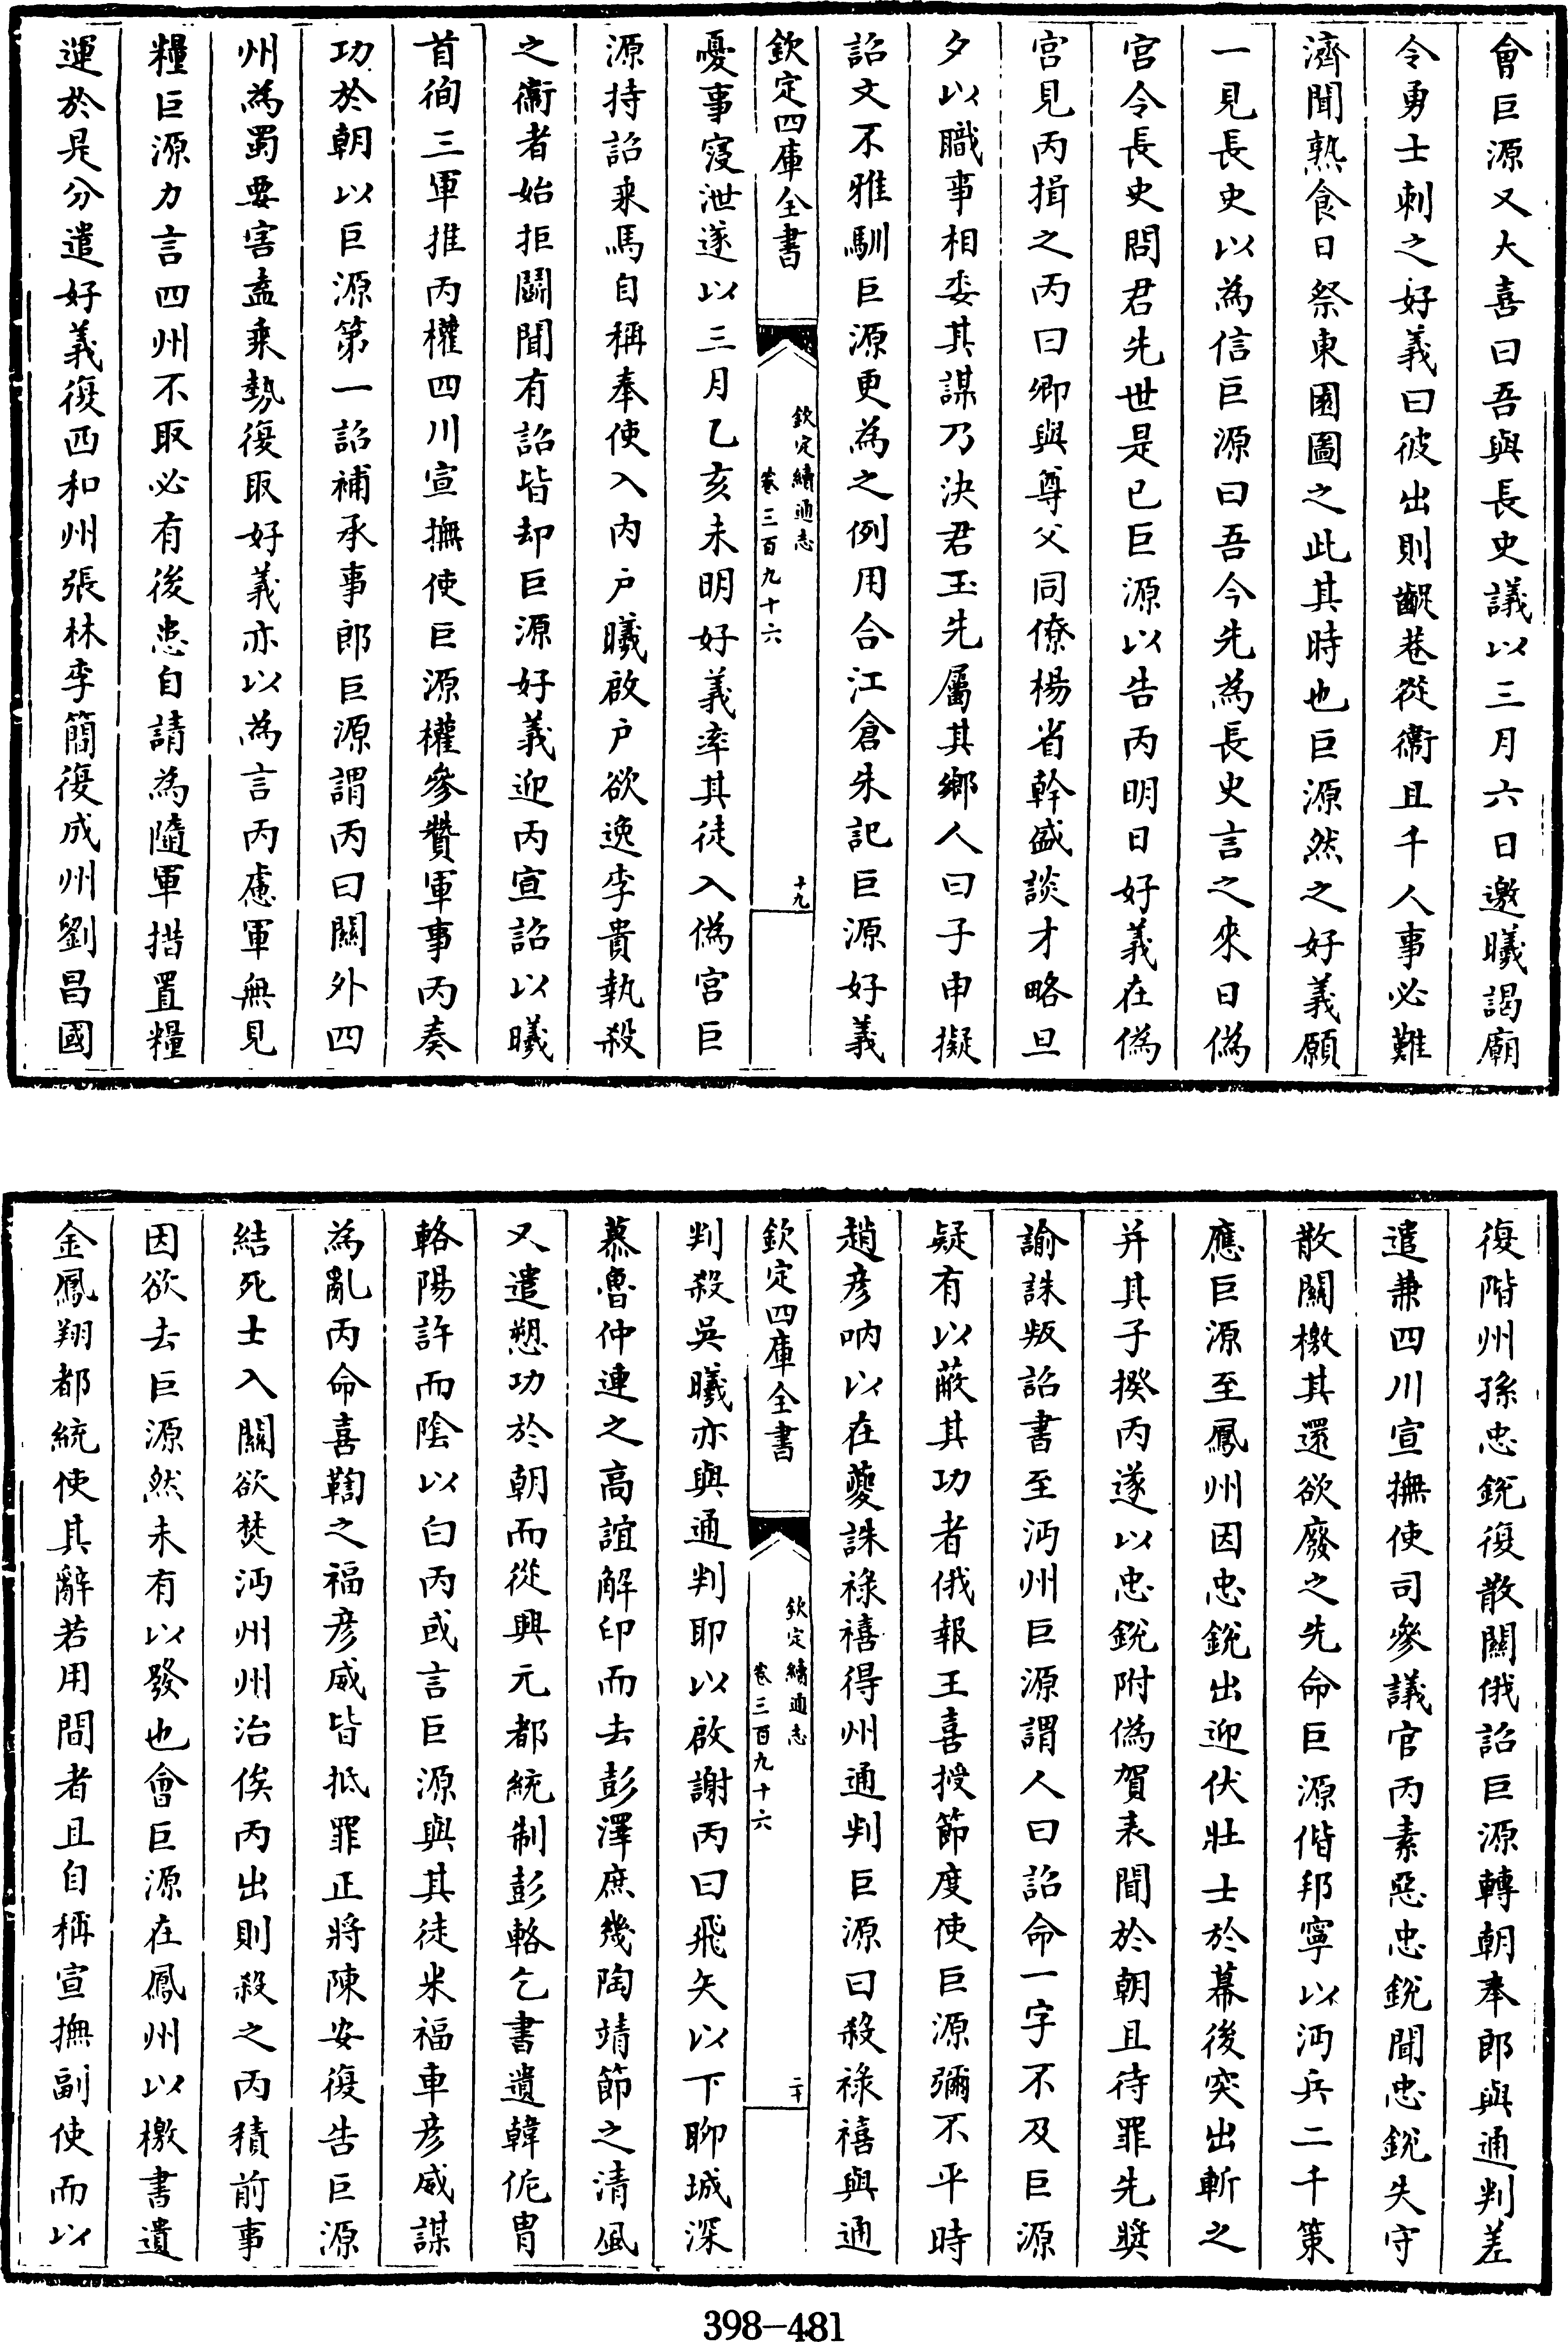 會巨源又大喜曰吾與長史議以三月六日邀曦謁廟
令勇士刺之好義曰彼出則齪巷從衞且千人事必難
濟聞熟食日祭東園圖之此其時也巨源然之好義願
一見長史以為信巨源曰吾今先為長史言之來日偽
宮令長史問君先世是已巨源以告丙明日好義在偽
宮見丙揖之丙曰卿與尊父同僚楊省幹盛談才略旦
夕以職事相委其謀乃決君玉先屬其鄉人曰子申擬
詔文不雅馴巨源更為之例用合江倉朱記巨源好義
欽定四庫全書
欽定續通志
卷三百九十六
十九
憂事寖泄遂以三月乙亥未明好義率其徒入偽宮巨
源持詔乘馬自稱奉使入内户曦啟户欲逸李貴執殺
之衞者始拒鬭聞有詔皆却巨源好義迎丙宣詔以曦
首徇三軍推丙權四川宣撫使巨源權參贊軍事丙奏
功於朝以巨源第一詔補承事郎巨源謂丙曰關外四
州為蜀要害盍乘勢復取好義亦以為言丙慮軍無見
糧巨源力言四州不取必有後患自請為隨軍措置糧
運於是分遣好義復西和州張林李簡復成州劉昌國
復階州孫忠銳復散關俄詔巨源轉朝奉郎與通判差
遣兼四川宣撫使司參議官丙素惡忠銳聞忠銳失守
散關檄其還欲廢之先命巨源偕邦寧以沔兵二千策
應巨源至鳳州因忠銳出迎伏壯士於幕後突出斬之
并其子揆丙遂以忠銳附偽賀表聞於朝且待罪先獎
諭誅叛詔書至沔州巨源謂人曰詔命一字不及巨源
疑有以蔽其功者俄報王喜授節度使巨源彌不平時
趙彦呐以在夔誅祿禧得州通判巨源曰殺祿禧與通
欽定四庫全書
欽定續通志
卷三百九十六
二十
判殺吳曦亦與通判耶以啟謝丙曰飛矢以下聊城深
慕魯仲連之高誼解印而去彭澤庶幾陶靖節之清風
又遣愬功於朝而從興元都統制彭輅乞書遺韓侂胄
輅陽許而陰以白丙或言巨源與其徒米福車彦威謀
為亂丙命喜鞫之福彦威皆抵罪正將陳安復告巨源
結死士入關欲焚沔州州治俟丙出則殺之丙積前事
因欲去巨源然未有以發也會巨源在鳳州以檄書遺
金鳳翔都統使其辭若用間者且自稱宣撫副使而以
398-481